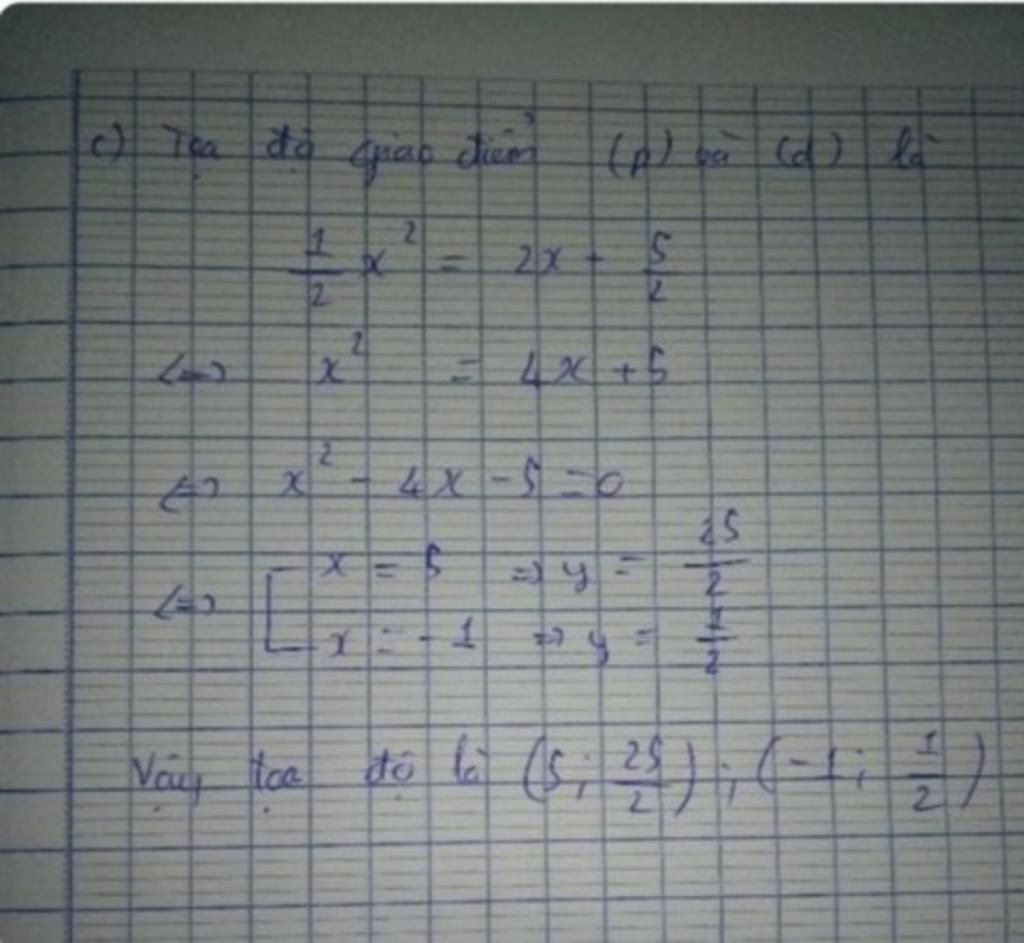 c) Tọa độ giao điểm (p) và (d) là
1/2 x² = 2x + 5/2
<=> x² = 4x + 5
<=> x² - 4x - 5 = 0
<=> [ x = 5 => y = 25/2
x = -1 => y = 1/2
Vậy tọa độ là (5; 25/2); (-1; 1/2)